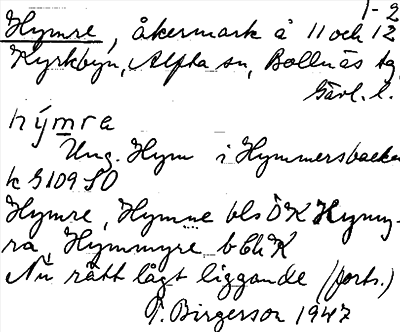 1-2
Hymre, åkermark å 11 och 12
Kyrkbyn, Alfta sn, Bollnäs tg,
Gävl. l.
hýmra
Ung. Hym i Hymmersbacken
k G109 SO
Hymre, Hymne bls ÖK Hymm-
ra, Hymmyre b Ch K
Nu rätt lågt liggande (forts.)
P. Birgerson 1947